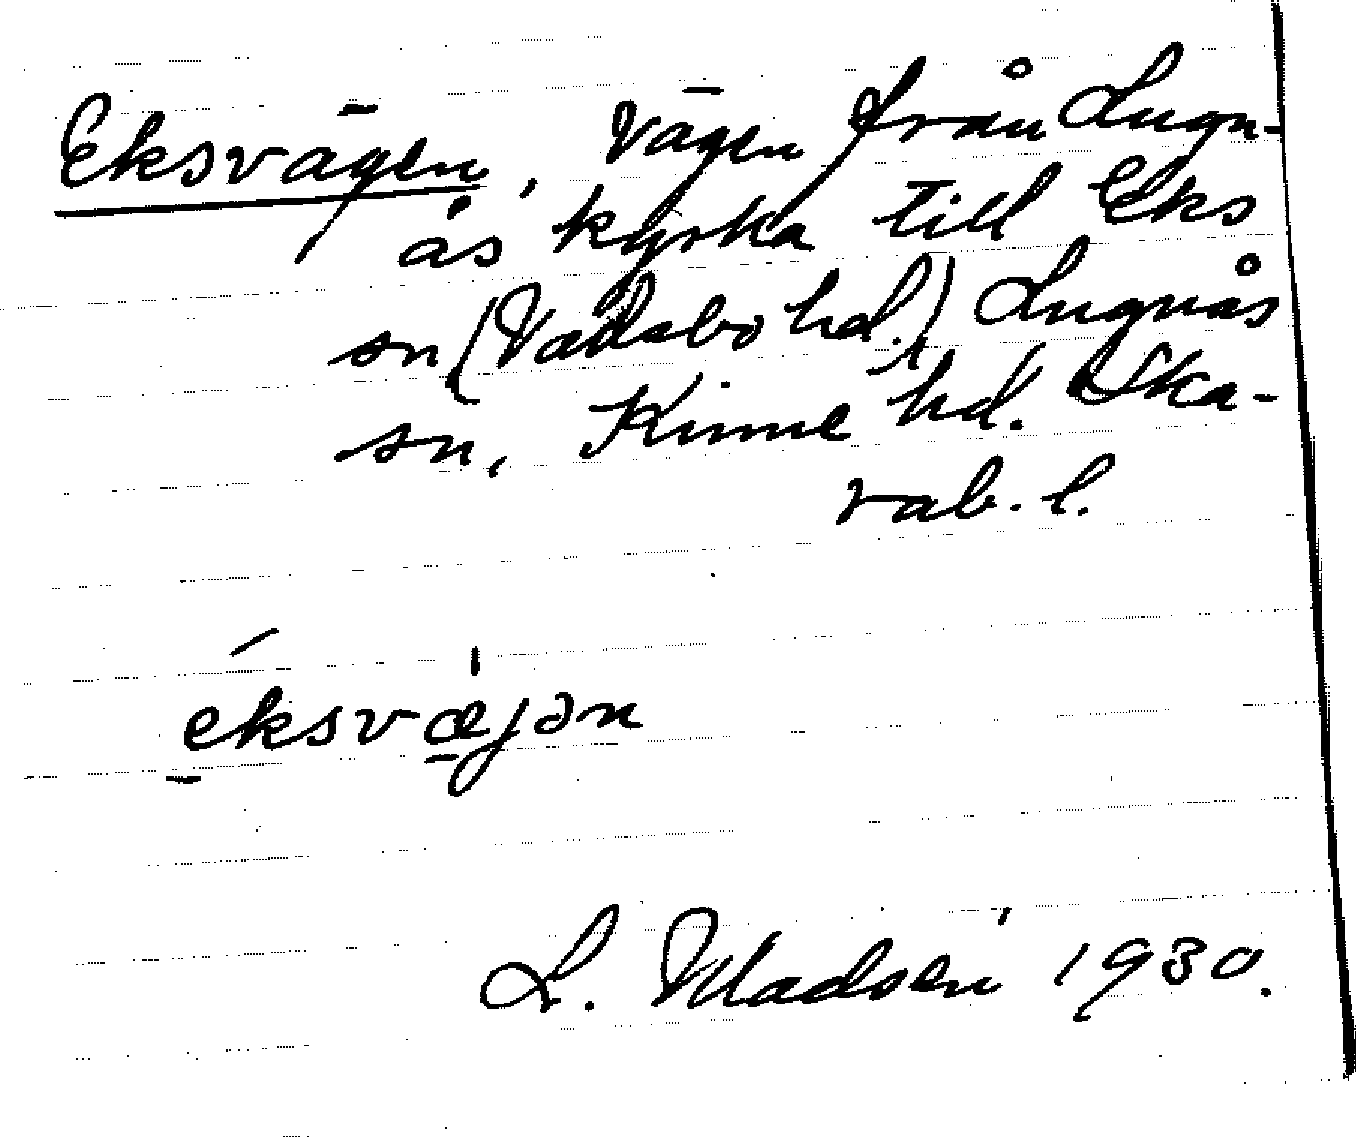 Eksvägen, Vägen från Lugn-
ås kyrka till Eks
sn (Vadsbo hd.) Lugnås
sn, Kinne hd. Ska-
rab. l.
éksvæ̱jən
L. Madsén 1930.